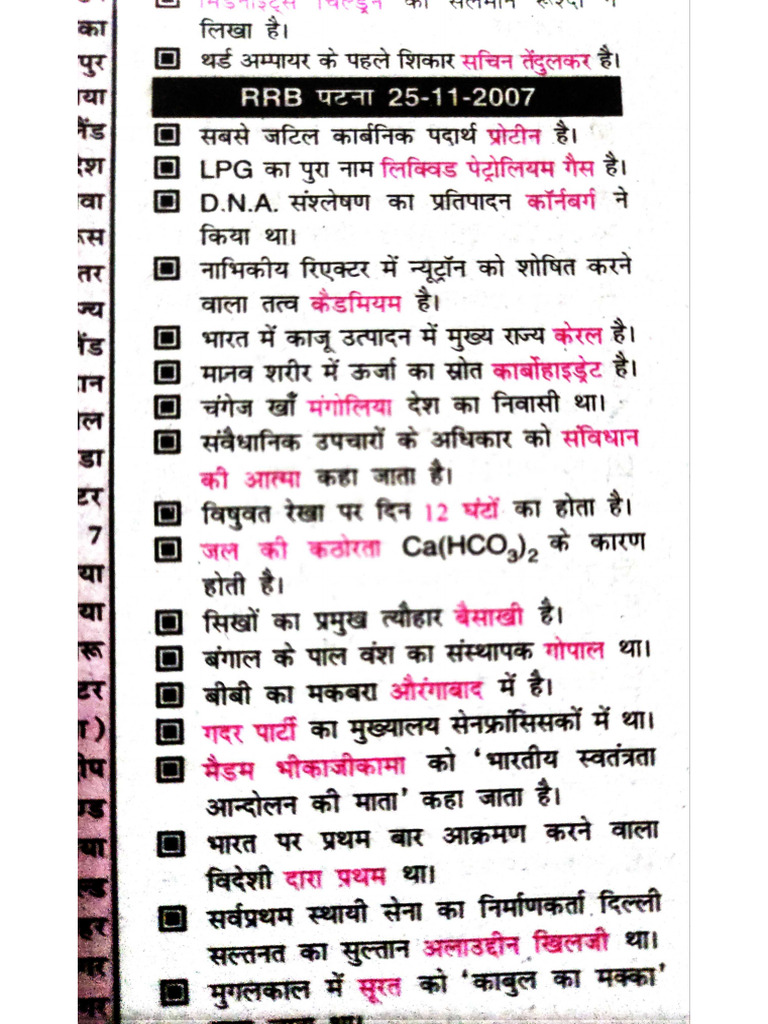 का
पुर
या
श
वा
स
तर
ज्य
ान
ल
डा
टर
7
या
या
रू
टर
ा)
ीप
ण्ड
या
ल्ड
हर
लिखा है।
थर्ड अम्पायर के पहले शिकार सचिन तेंदुलकर है।
RRB पटना 25-11-2007
सबसे जटिल कार्बनिक पदार्थ प्रोटीन है।
LPG का पुरा नाम लिक्विड पेट्रोलियम गैस है।
D.N.A. संश्लेषण का प्रतिपादन कॉर्नबर्ग ने
किया था।
नाभिकीय रिएक्टर में न्यूट्रॉन को शोषित करने
वाला तत्व कैडमियम है।
भारत में काजू उत्पादन में मुख्य राज्य केरल है।
मानव शरीर में ऊर्जा का स्रोत कार्बोहाइड्रेट है।
चंगेज खाँ मंगोलिया देश का निवासी था।
संवैधानिक उपचारों के अधिकार को संविधान
की आत्मा कहा जाता है।
विषुवत रेखा पर दिन 12 घंटों का होता है।
जल की कठोरता Ca(HCO₃)₂ के कारण
होती है।
सिखों का प्रमुख त्यौहार बैसाखी है।
बंगाल के पाल वंश का संस्थापक गोपाल था।
बीबी का मकबरा औरंगाबाद में है।
गदर पार्टी का मुख्यालय सेनफ्रांसिसकों में था।
मैडम भीकाजीकामा को 'भारतीय स्वतंत्रता
आन्दोलन की माता' कहा जाता है।
भारत पर प्रथम बार आक्रमण करने वाला
विदेशी दारा प्रथम था।
सर्वप्रथम स्थायी सेना का निर्माणकर्ता दिल्ली
सल्तनत का सुल्तान अलाउद्दीन खिलजी था।
मुगलकाल में सूरत को 'काबुल का मक्का'